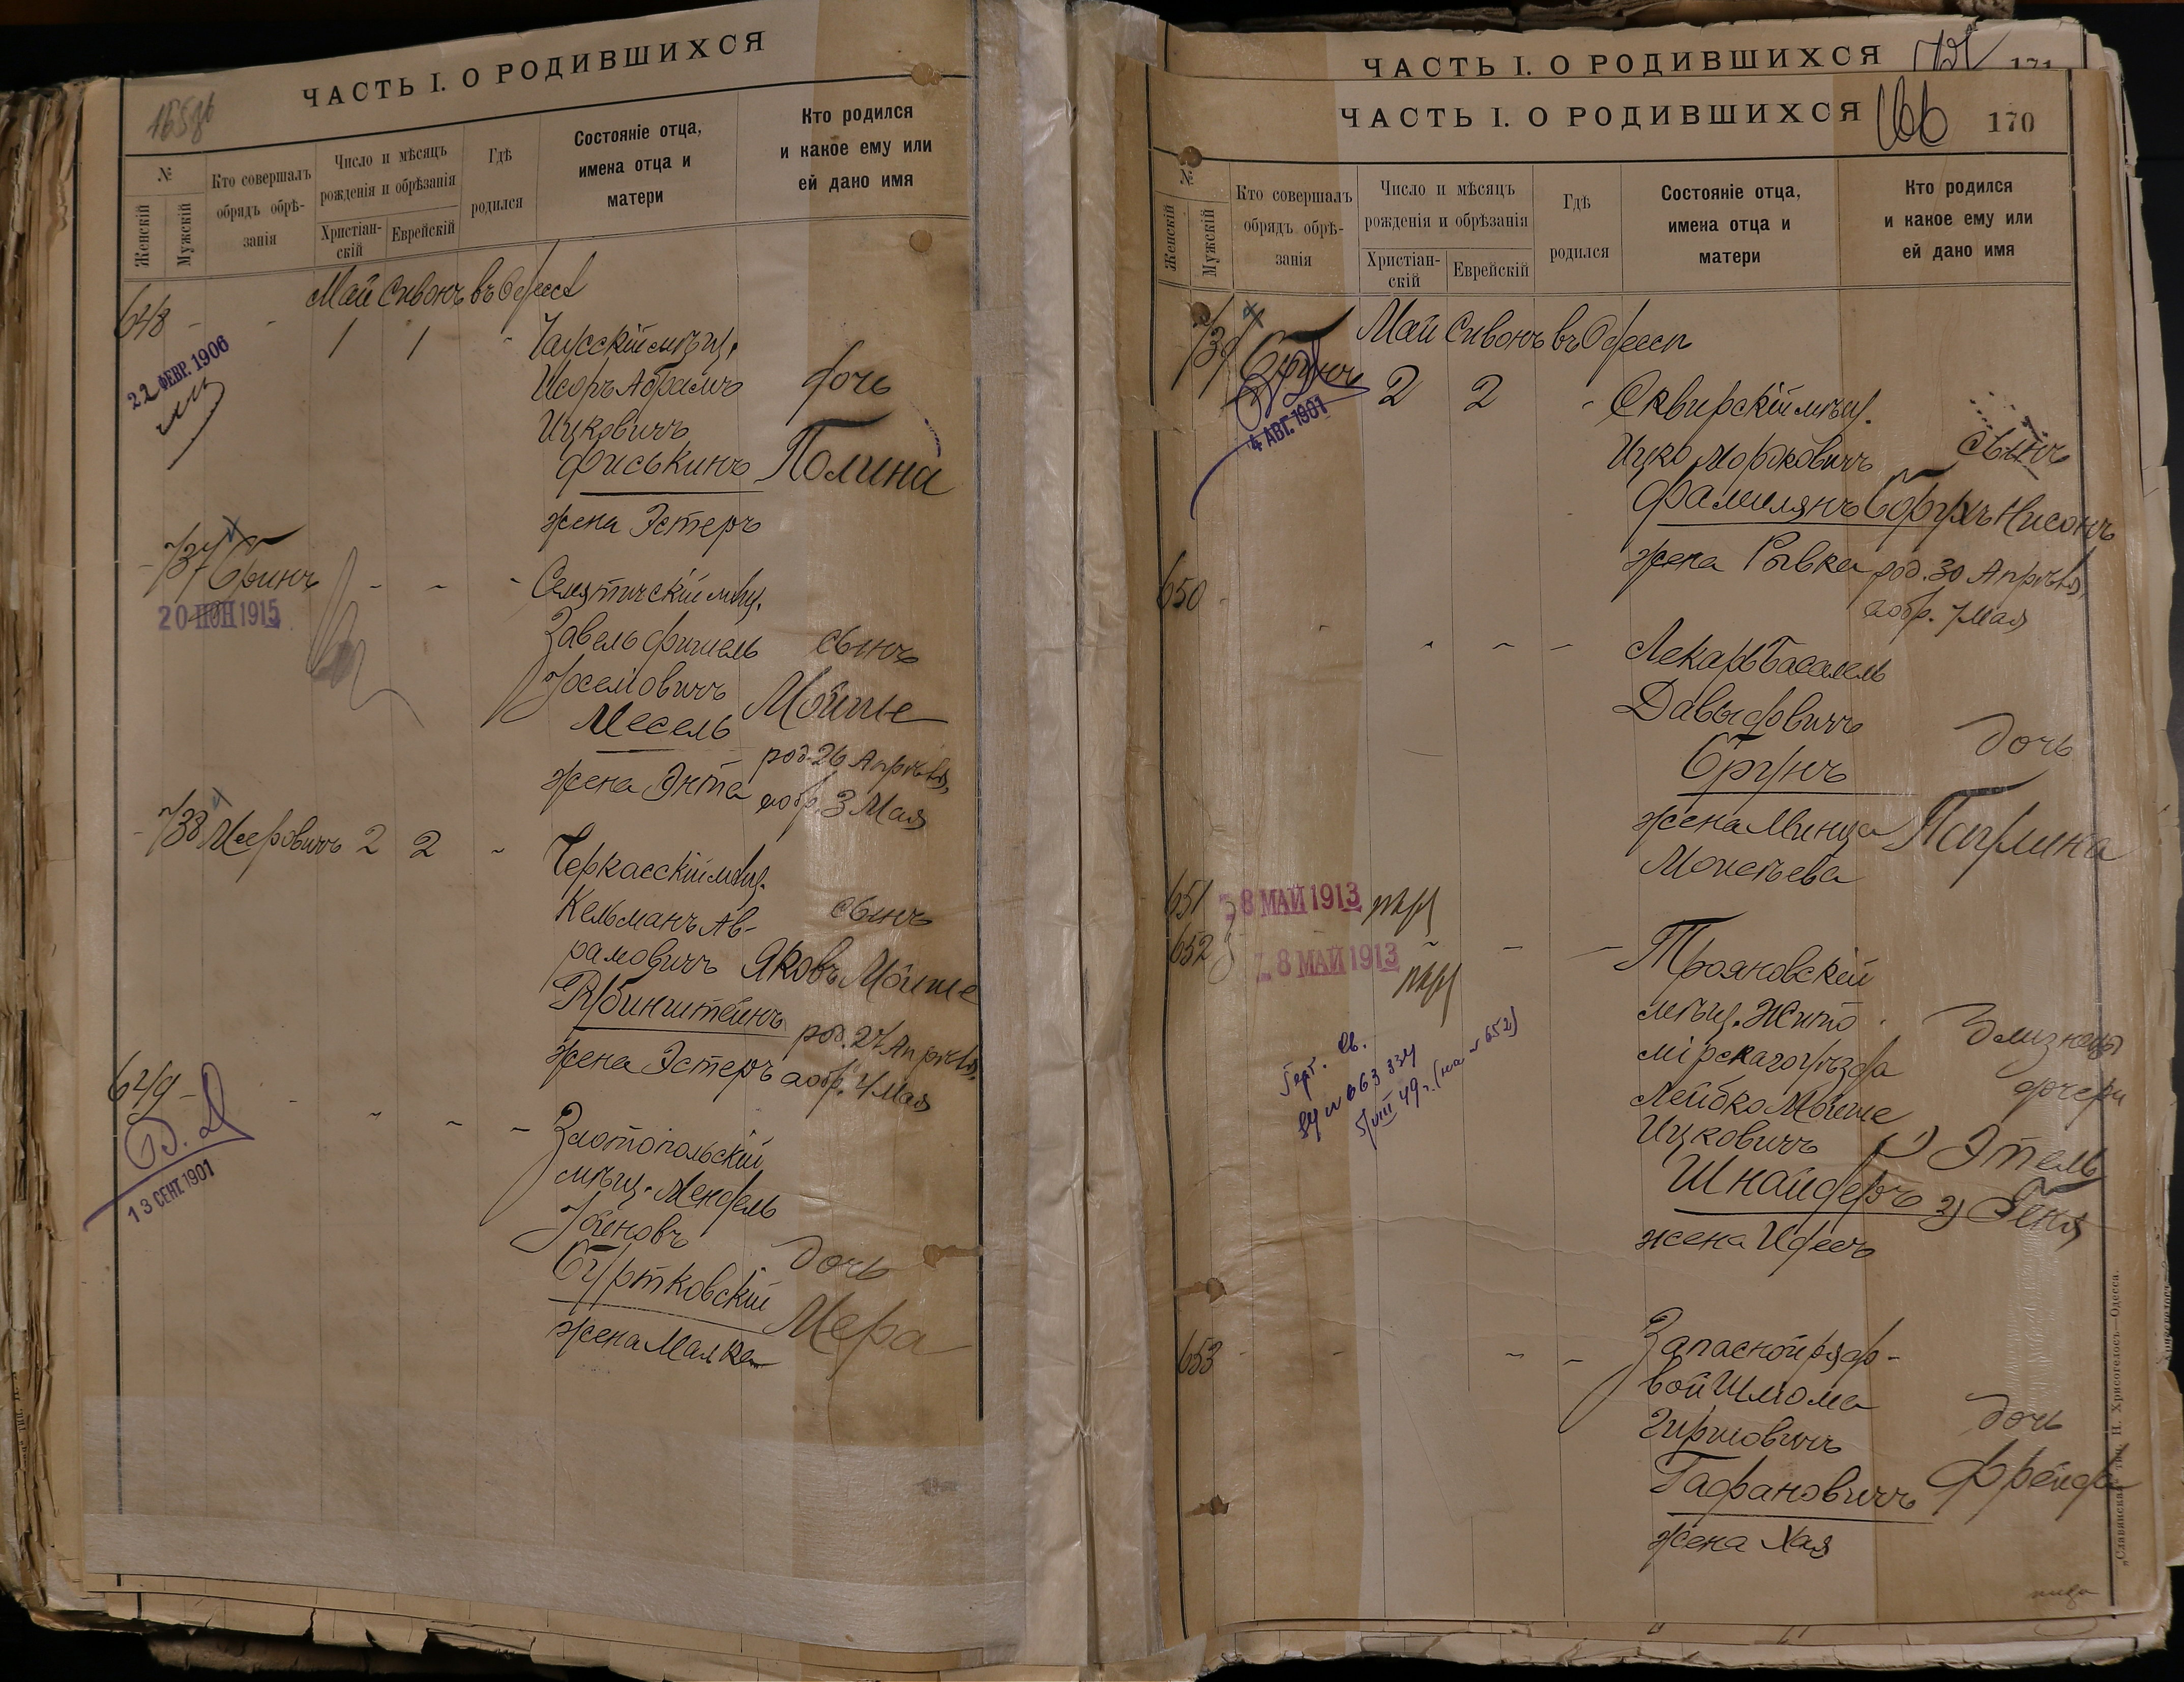 ЧАСТЬ I. О РОДИВШИХСЯ
№
Женскій
Мужскій
Кто совершалъ
обрядъ обрѣ-
занія
Число и мѣсяцъ
рожденія и обрѣзанія
Христіан-
скій
Еврейскій
Гдѣ
родился
Состояніе отца,
имена отца и
матери
Кто родился
и какое ему или
ей дано имя
Май Сивонъ въ Одессѣ
648
22 ФЕВР. 1906
1 1
Чаусскій мѣщ.
Исоръ Абрамъ
Ицковичъ
Фиськинъ
жена Эстеръ
дочь
Полина
737 Бринъ
20 ИЮН 1915
Семятичскій мѣщ.
Завель Фишель
Іоселіовичъ
Месель
жена Энта
сынъ
Мойше
род. 26 Апрѣля,
а обр. 3 Мая
738 Мееровичъ 2 2
Черкасскій мѣщ.
Кельманъ Ав-
рамовичъ
Рубинштейнъ
жена Эстеръ
сынъ
Яковъ Мойше
род. 27 Апрѣля,
а обр. 4 Мая
649
13 СЕНТ. 1901
Златопольскій
мѣщ. Мендель
Буртковскій
жена Малка
дочь
Мера
ЧАСТЬ I. О РОДИВШИХСЯ
171
ЧАСТЬ I. О РОДИВШИХСЯ
166 170
№
Женскій
Мужскій
Кто совершалъ
обрядъ обрѣ-
занія
Число и мѣсяцъ
рожденія и обрѣзанія
Христіан-
скій
Еврейскій
Гдѣ
родился
Состояніе отца,
имена отца и
матери
Кто родился
и какое ему или
ей дано имя
Май Сивонъ въ Одессѣ
739 Бринъ
4 АВГ. 1901
2 2
Сквирскій мѣщ.
Ицко Мордковичъ
Фамилянъ
жена Рывка
сынъ
Борухъ Нисонъ
род. 30 Апрѣля,
а обр. 7 Мая
650
Лекарь Басалель
Давыдовичъ
Брунъ
жена Минца
Моисеева
дочь
Паулина
651
8 МАЙ 1913
652
8 МАЙ 1913
Трояновскій
мѣщ. Жито-
мірскаго уѣзда
Лейбко Мойше
Ицковичъ
Шнайдеръ
жена Идесъ
Близнецы
дочери
1) Этель
2) Беня
653
Запасной рядо-
вой Шлиома
Гиршовичъ
Гафановичъ
жена Хая
дочь
Фрейда
„Славянская“ тип. Н. Хрисогелосъ—Одесса.